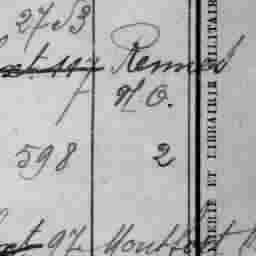 27 53
Rennes
N O.
598 2
97 Montfort
ERIE ET LIBRAIRIE MILITAIRE